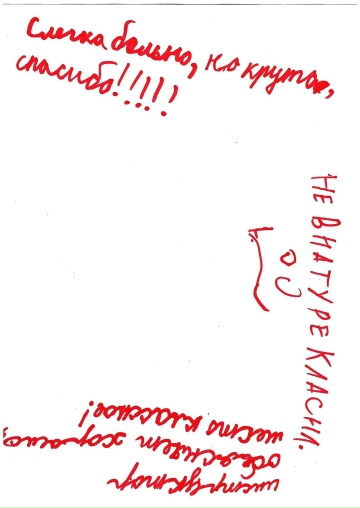 Слегка больно, но круто,
спасибо!!!!!
НЕ ВНАТУРЕ КЛАСНИ.
инструктор
объясняет хорошо,
место классное!